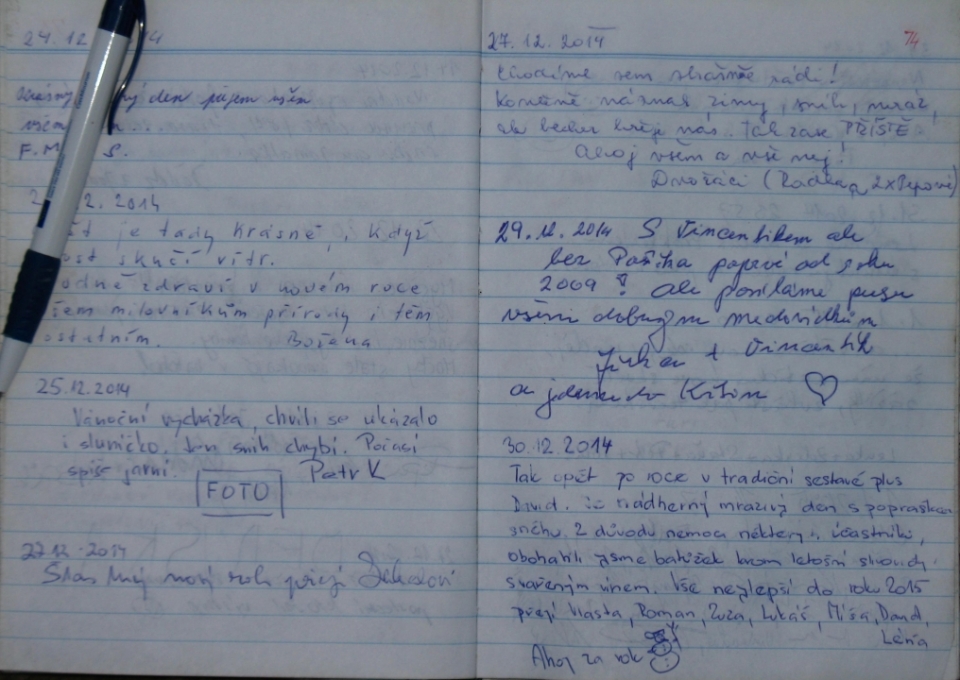 24.12 14
den přejem všem
F. M. S.
2 .12.2014
je tady krásně, když
skučí vítr.
zdraví v novém roce
milovníkům přírody i těm
Božena
25.12.2014
Vánoční vycházka, chvíli se ukázalo
i sluníčko, jen sníh chybí. Počasí
spíše jarní. Petr K
FOTO
27.12.2014
Šťastný nový rok přejí
27.12.2014
74
Chodíme sem strašně rádi!
Konečně máme zimy, sníh, mráz,
ale becher hřeje nás. Tak zase PŘÍŠTĚ
Ahoj všem a vše nej!
Dvořáci (Radka, 2xPepové)
29.12.2014 S Vincentíkem ale
bez poprvé od roku
2009 ! ale posíláme pusu
všem dobrým medvídkům
+ Vincentík
a
30.12.2014
Tak opět po roce v tradiční sestavě plus
David. Je nádherný mrazivý den s popraškem
sněhu. Z důvodu nemoci některých účastníků,
obohatili jsme batůžek krom letošní slivovice
svařeným vínem. Vše nejlepší do roku 2015
přejí Vlasta, Roman, Zuza, Lukáš, Míša, David,
Léňa
Ahoj za rok